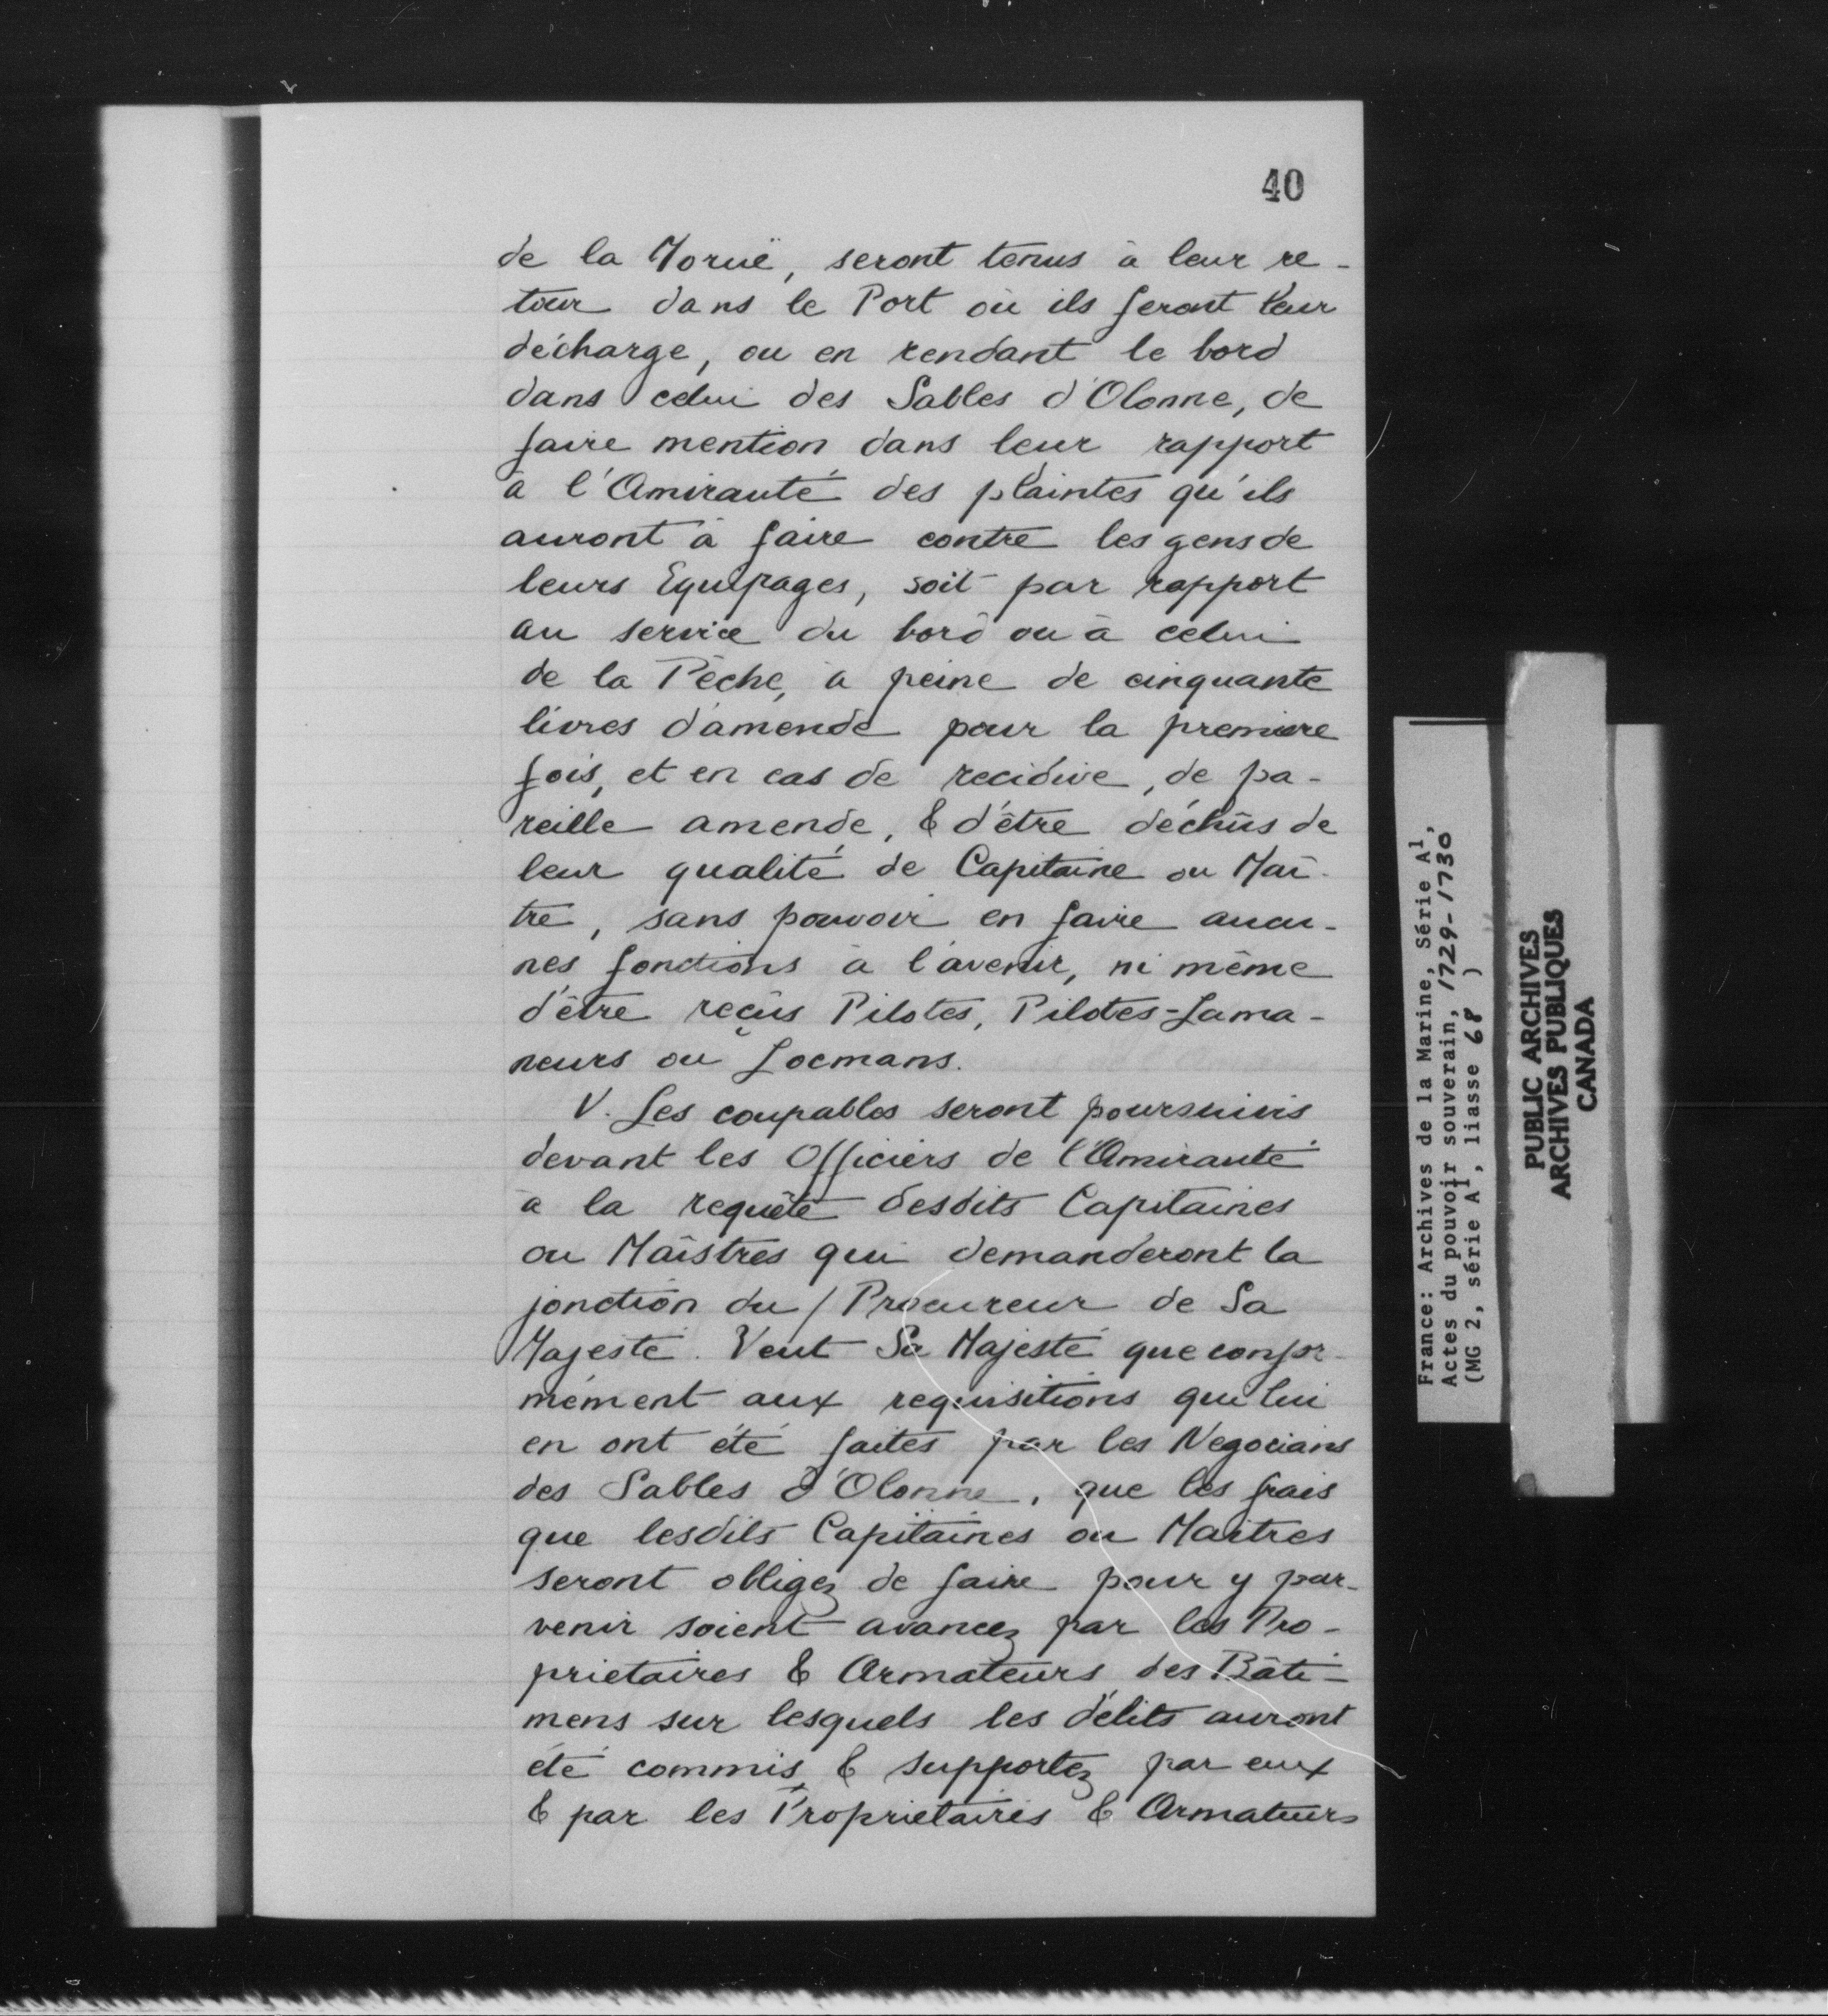 40
de la Moruë, seront tenus à leur re-
tour dans le Port où ils feront leur
décharge, ou en rendant le bord
dans celui des Sables d'Olonne, de
faire mention dans leur rapport
à l'Amirauté des plaintes qu'ils
auront à faire contre les gens de
leurs Equipages, soit par rapport
au service du bord ou à celui
de la Pêche, à peine de cinquante
livres d'amende pour la premiere
fois, et en cas de recidive, de pa-
reille amende, & d'être déchûs de
leur qualité de Capitaine ou Maî-
tre, sans pouvoir en faire aucu-
nes fonctions à l'avenir, ni même
d'être reçûs Pilotes, Pilotes-Lama-
neurs ou Locmans.
V. Les coupables seront poursuivis
devant les Officiers de l'Amirauté
à la requête desdits Capitaines
ou Maîstres qui demanderont la
jonction du Procureur de Sa
Majesté. Veut Sa Majesté que confor-
mément aux requisitions qui lui
en ont été faites par les Negocians
des Sables d'Olonne, que les frais
que lesdits Capitaines ou Maitres
seront obligez de faire pour y par-
venir soient avancez par les Pro-
prietaires & Armateurs des Bâti-
mens sur lesquels les délits auront
été commis & supportez par eux
& par les Proprietaires & Armateurs
France: Archives de la Marine, Série A1,
Actes du pouvoir souverain, 1729-1730
(MG 2, série A1, liasse 68 )
PUBLIC ARCHIVES
ARCHIVES PUBLIQUES
CANADA